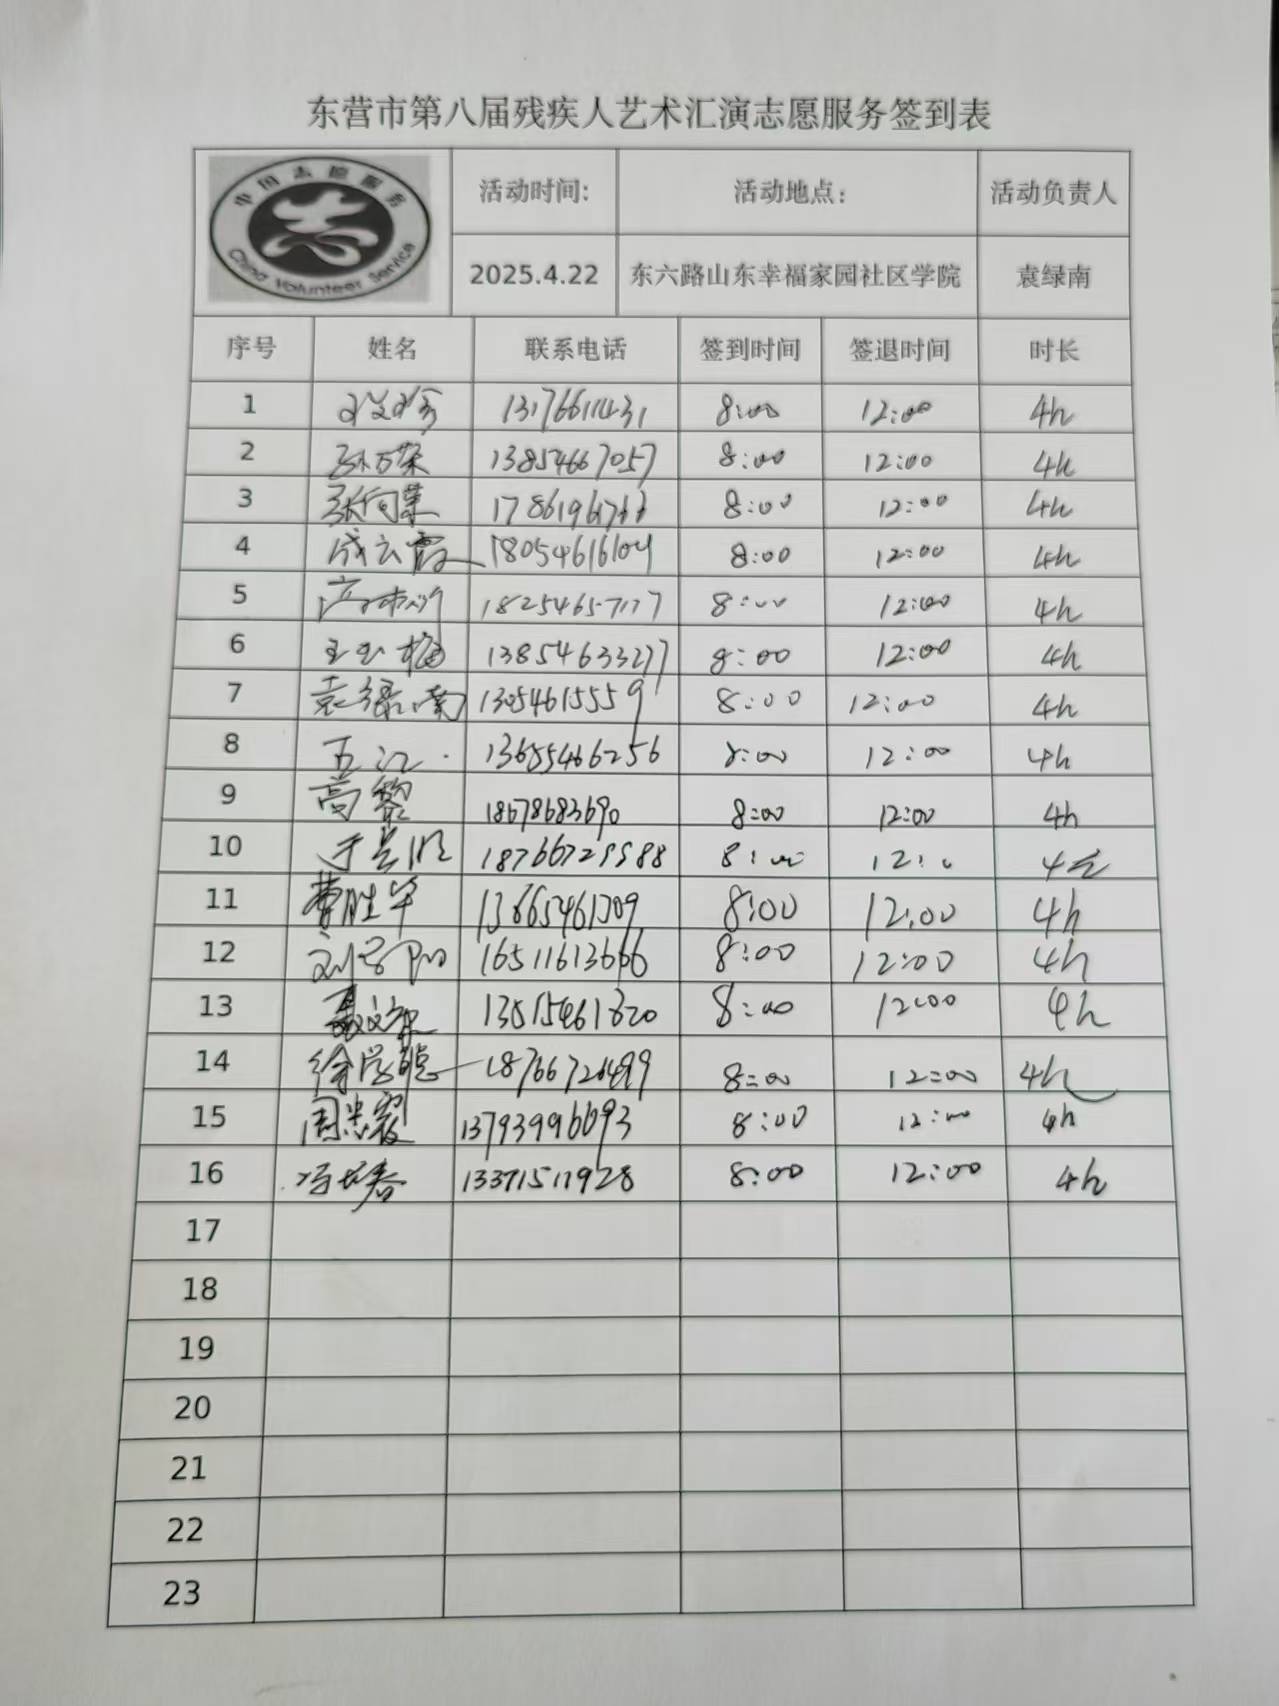 东营市第八届残疾人艺术汇演志愿服务签到表
中国志愿服务
China Volunteer Service
活动时间: 活动地点: 活动负责人
2025.4.22 东六路山东幸福家园社区学院 袁绿南
序号 姓名 联系电话 签到时间 签退时间 时长
1 13176611431 8:00 12:00 4h
2 孙万荣 13854667057 8:00 12:00 4h
3 张向荣 8:00 12:00 4h
4 成云霞 18054616104 8:00 12:00 4h
5 18254657177 8:00 12:00 4h
6 王玉梅 13854633277 8:00 12:00 4h
7 袁绿南 13054615559 8:00 12:00 4h
8 王江 13655466256 8:00 12:00 4h
9 高黎 18678683690 8:00 12:00 4h
10 18766729588 8:00 12:00 4h
11 曹胜华 13665461309 8:00 12:00 4h
12 刘学阳 16511613666 8:00 12:00 4h
13 8:00 12:00 4h
14 徐学聪 18766726499 8:00 12:00 4h
15 周忠霞 13793996693 8:00 12:00 4h
16 冯长春 13371511928 8:00 12:00 4h
17
18
19
20
21
22
23